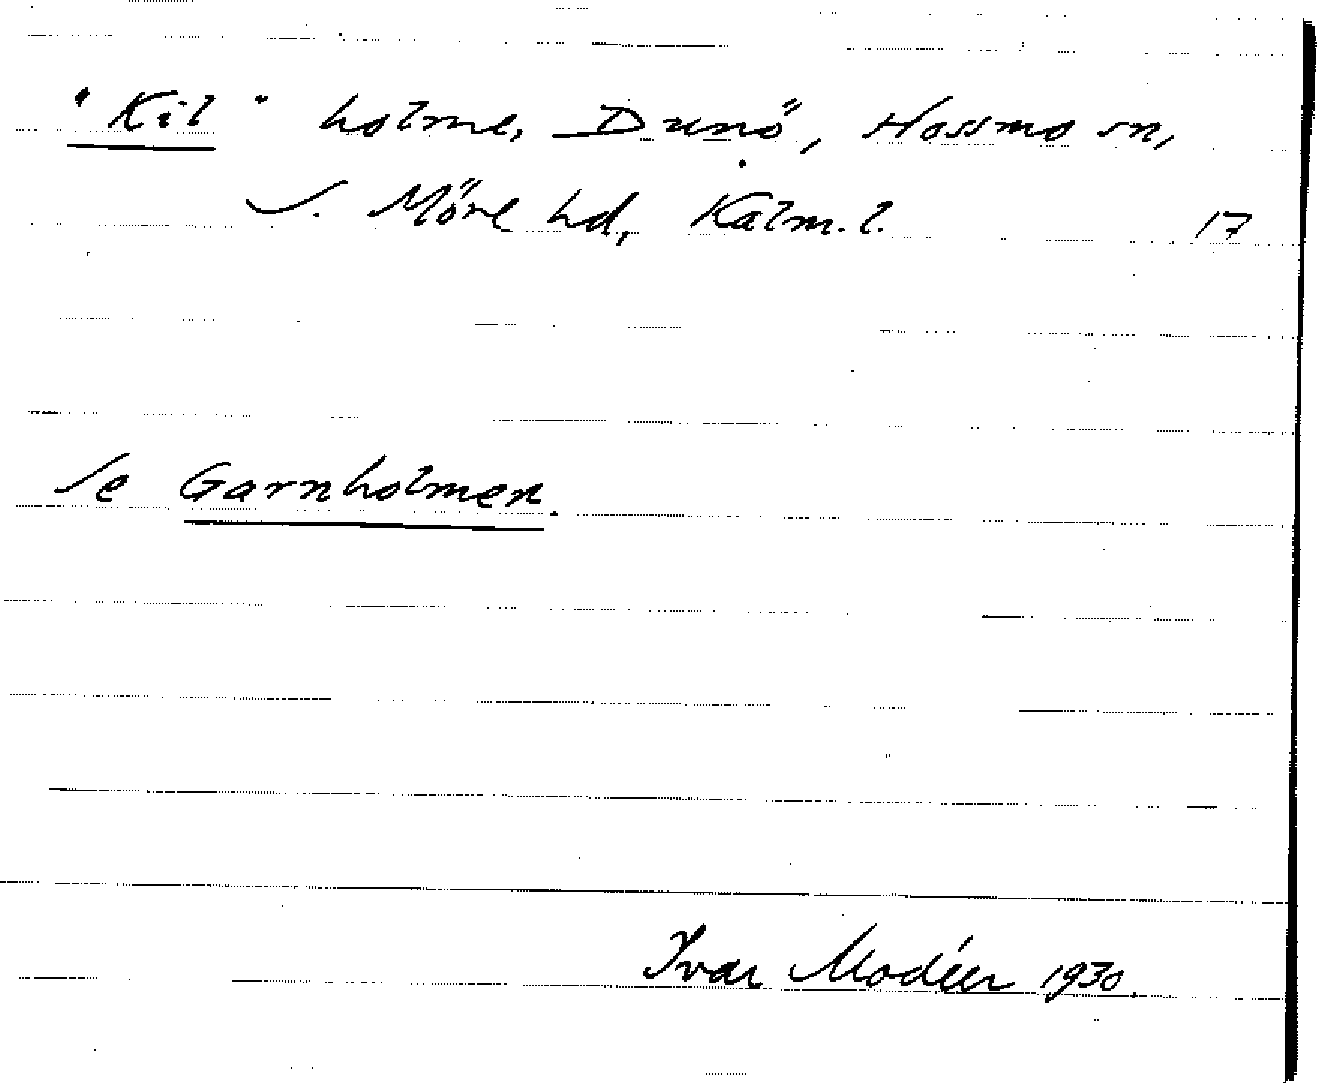 "Kil" holme, Dunö, Hossmo sn,
S. Möre hd, Kalm. l. 17
Se Garnholmen.
Ivar Modéer 1930.